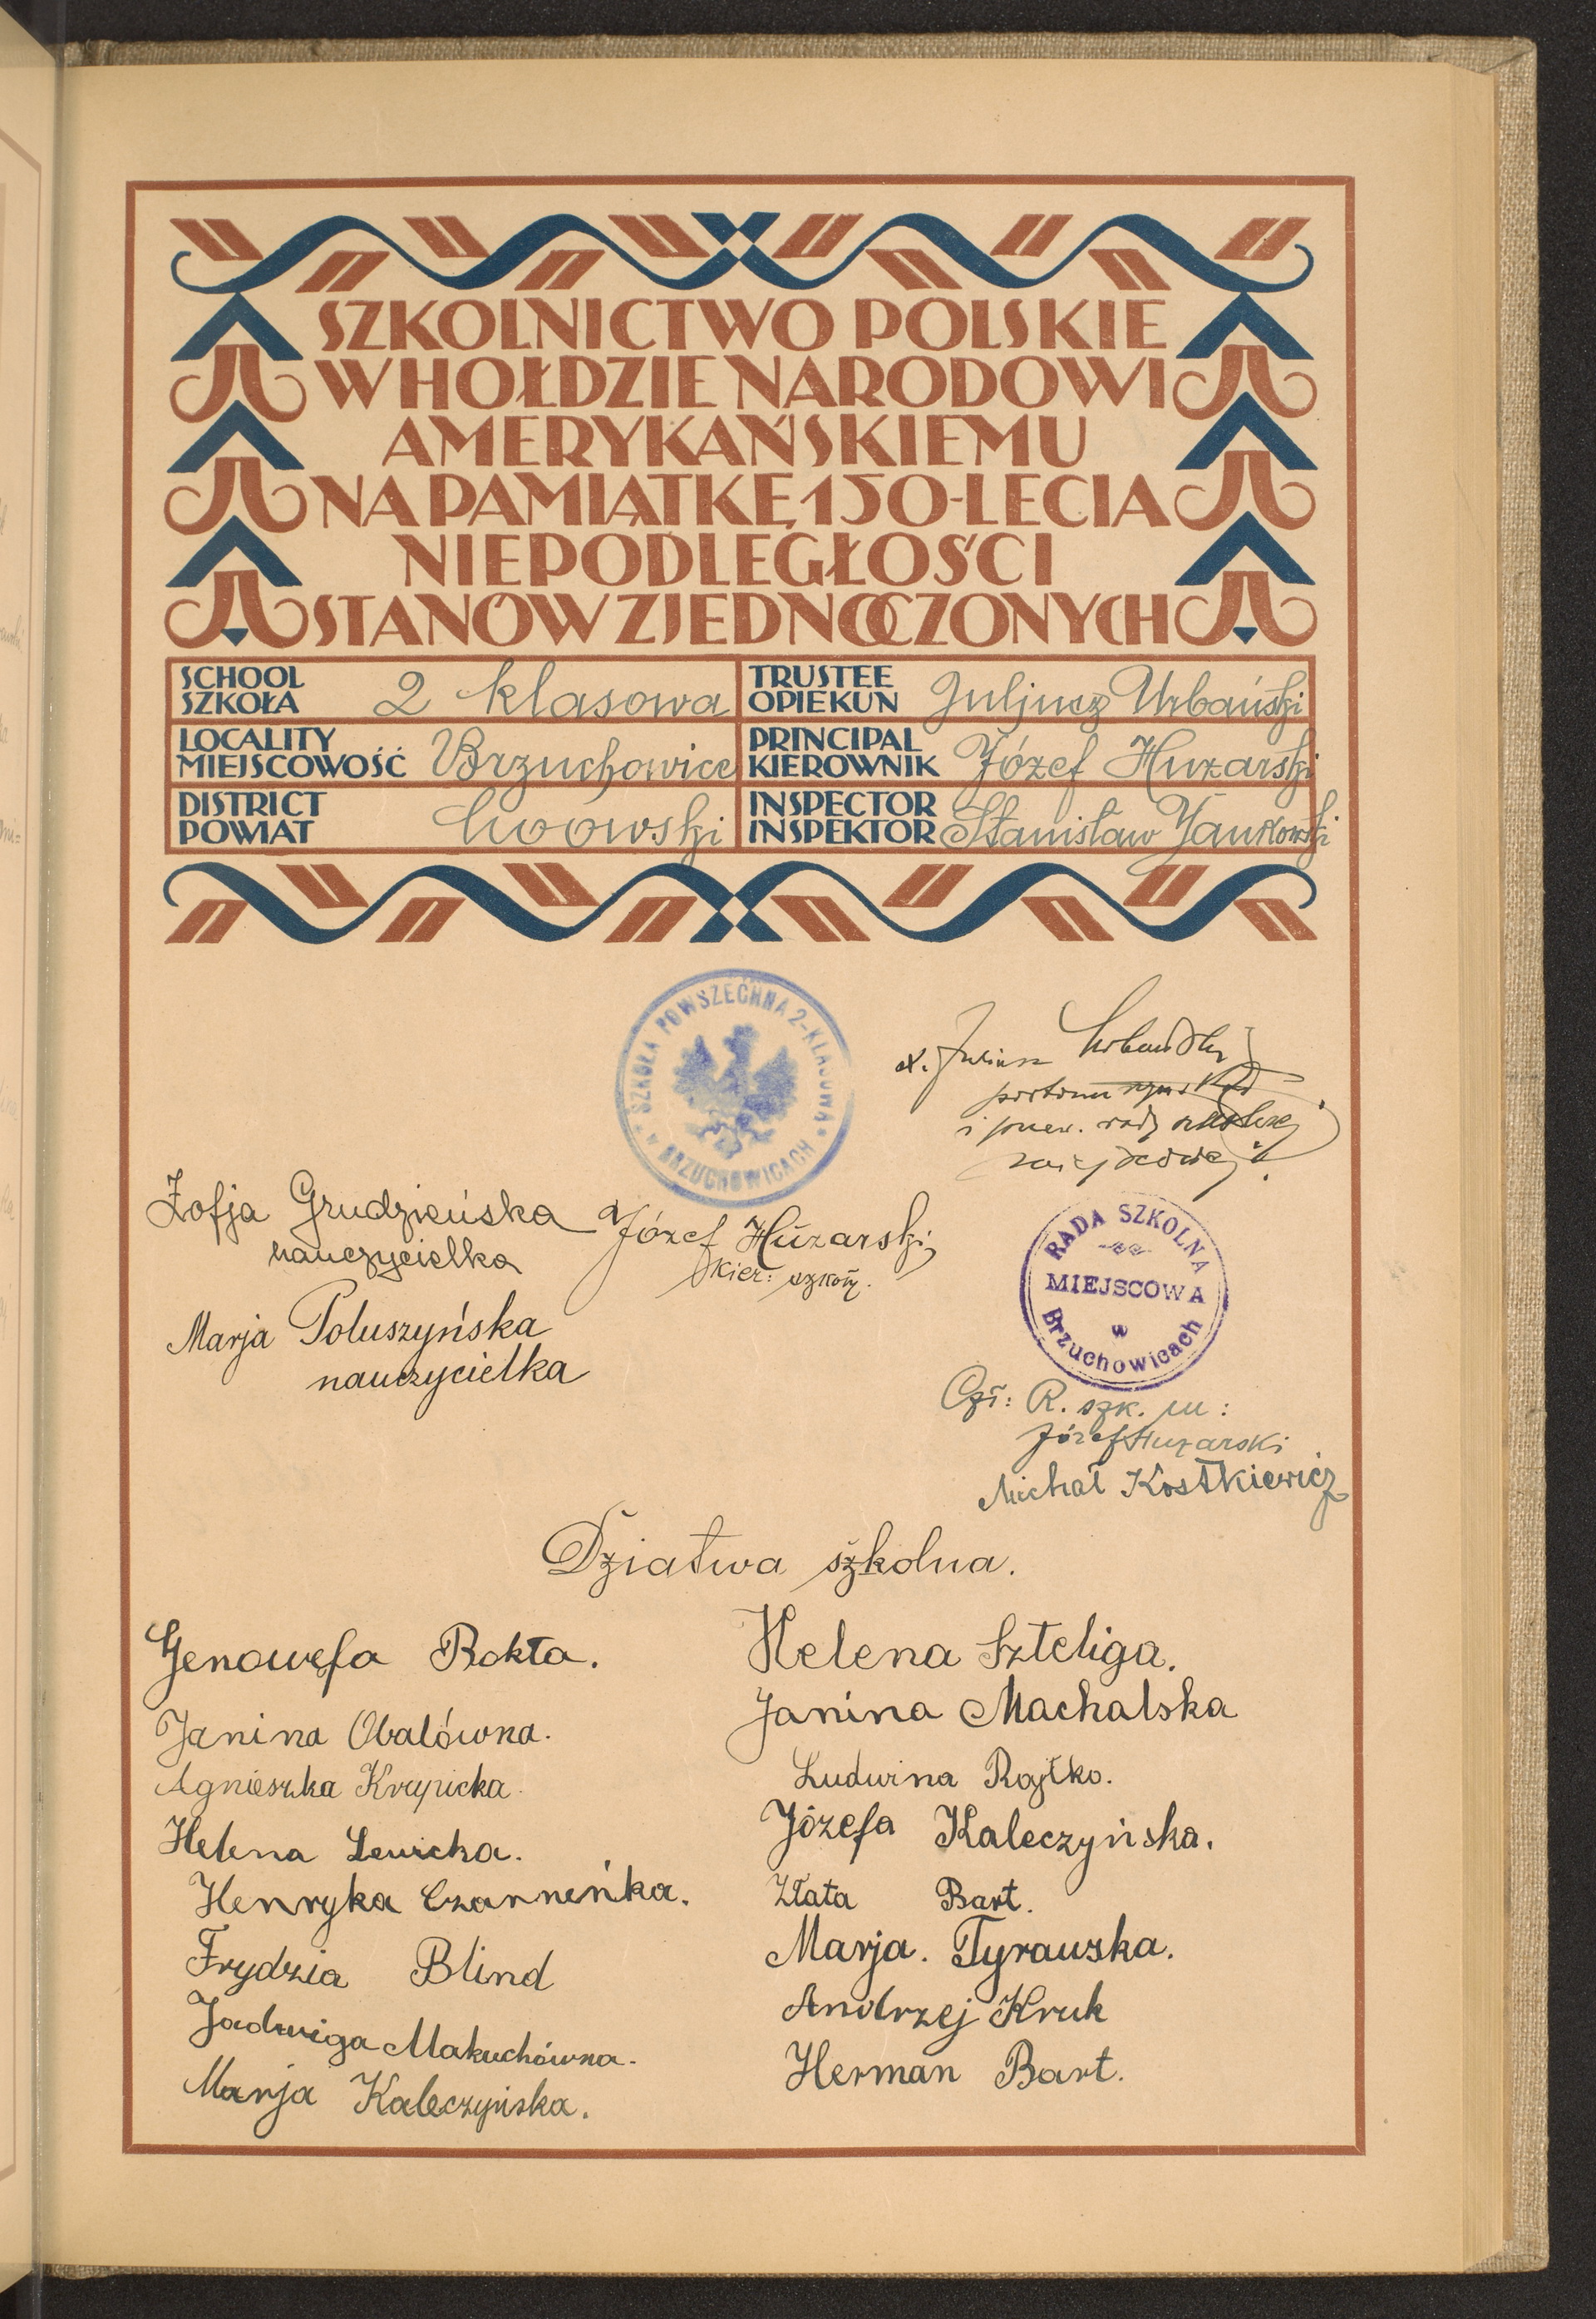 SZKOLNICTWO POLSKIE
W HOŁDZIE NARODOWI
AMERYKAŃSKIEMU
NA PAMIĄTKĘ 150-LECIA
NIEPODLEGŁOŚCI
STANÓW ZJEDNOCZONYCH
SCHOOL
SZKOŁA 2 klasowa
TRUSTEE
OPIEKUN Juljusz Urbański
LOCALITY
MIEJSCOWOŚĆ Brzuchowice
PRINCIPAL
KIEROWNIK Józef Huzarski
DISTRICT
POWIAT Lwowski
INSPECTOR
INSPEKTOR Stanisław Jankowski
SZKOŁA POWSZECHNA 2-KLASOWA
BRZUCHOWICACH
X. Juliusz Urbański
i przew. rady szkolnej
miejscowej
Zofja Grudzieńska
nauczycielka
Józef Huzarski
kier: szkoły.
Marja Poluszyńska
nauczycielka
RADA SZKOLNA
MIEJSCOWA
w
Brzuchowicach
Czł: R. szk. m:
Józef Huzarski
Michał Kostkiewicz
Dziatwa szkolna.
Genowefa Rokta.
Janina Obalówna.
Agnieszka Krzypicka.
Helena Lewicka.
Henryka Czarneńka.
Frydzia Blind
Jadwiga Makuchówna.
Marja Kaleczyńska.
Helena Szteliga.
Janina Machalska
Ludwina Rojtko.
Józefa Kaleczyńska.
Złata Bart.
Marja. Tyrauska.
Andrzej Kruk
Herman Bart.